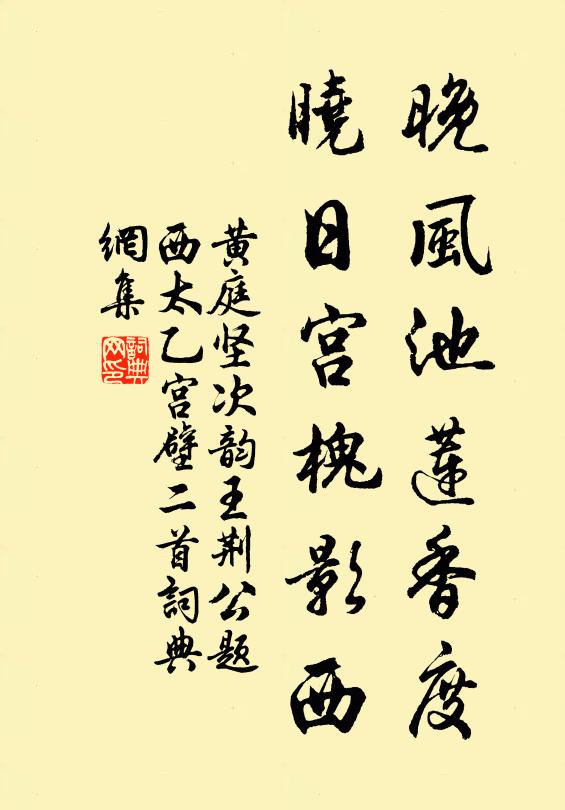 晚風池蓮香度
曉日宫槐影西
黄庭坚次韵王荆公题
西太乙宫壁二首詞典
網集
詞典
网印